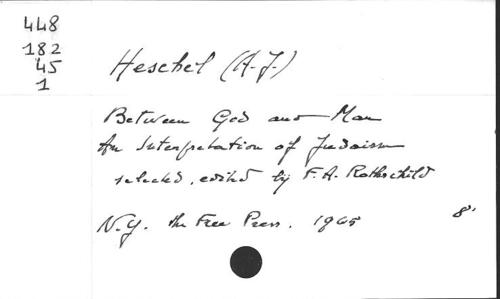 448
182
45
1
Heschel (A.J.)
Between God and Man
An Interpretation of Judaism
selected, edited by F.A. Rothschild
N.Y. the Free Press. 1965 8°